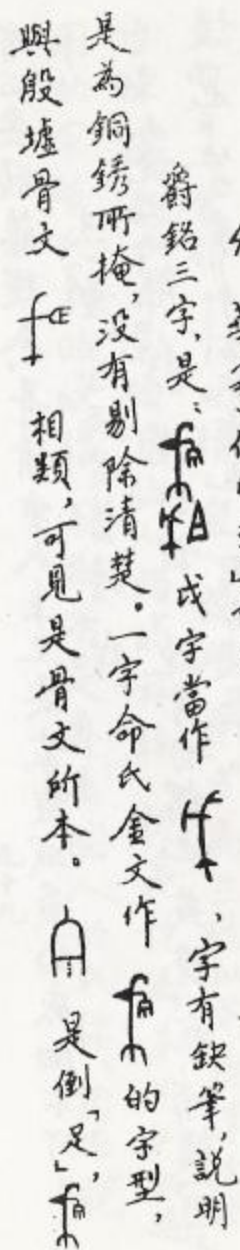 爵銘三字，是： 戉字當作 ，字有缺筆，説明
是為銅銹所掩，没有剔除清楚。一字命氏金文作 的字型，
與殷墟骨文 相類，可見是骨文所本。 是倒「足」，